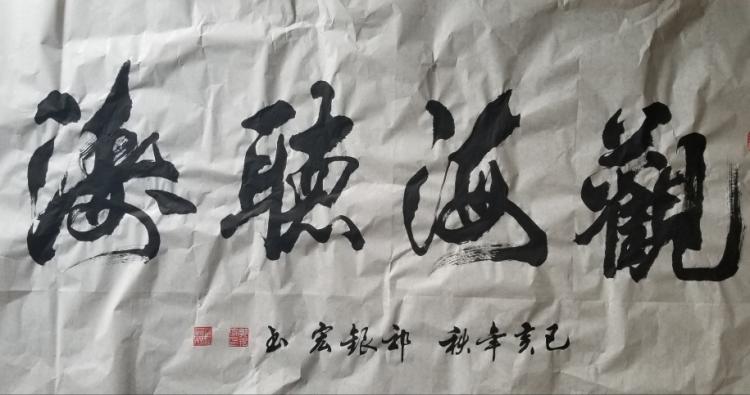 觀海聽濤
己亥年秋 祁銀宏书